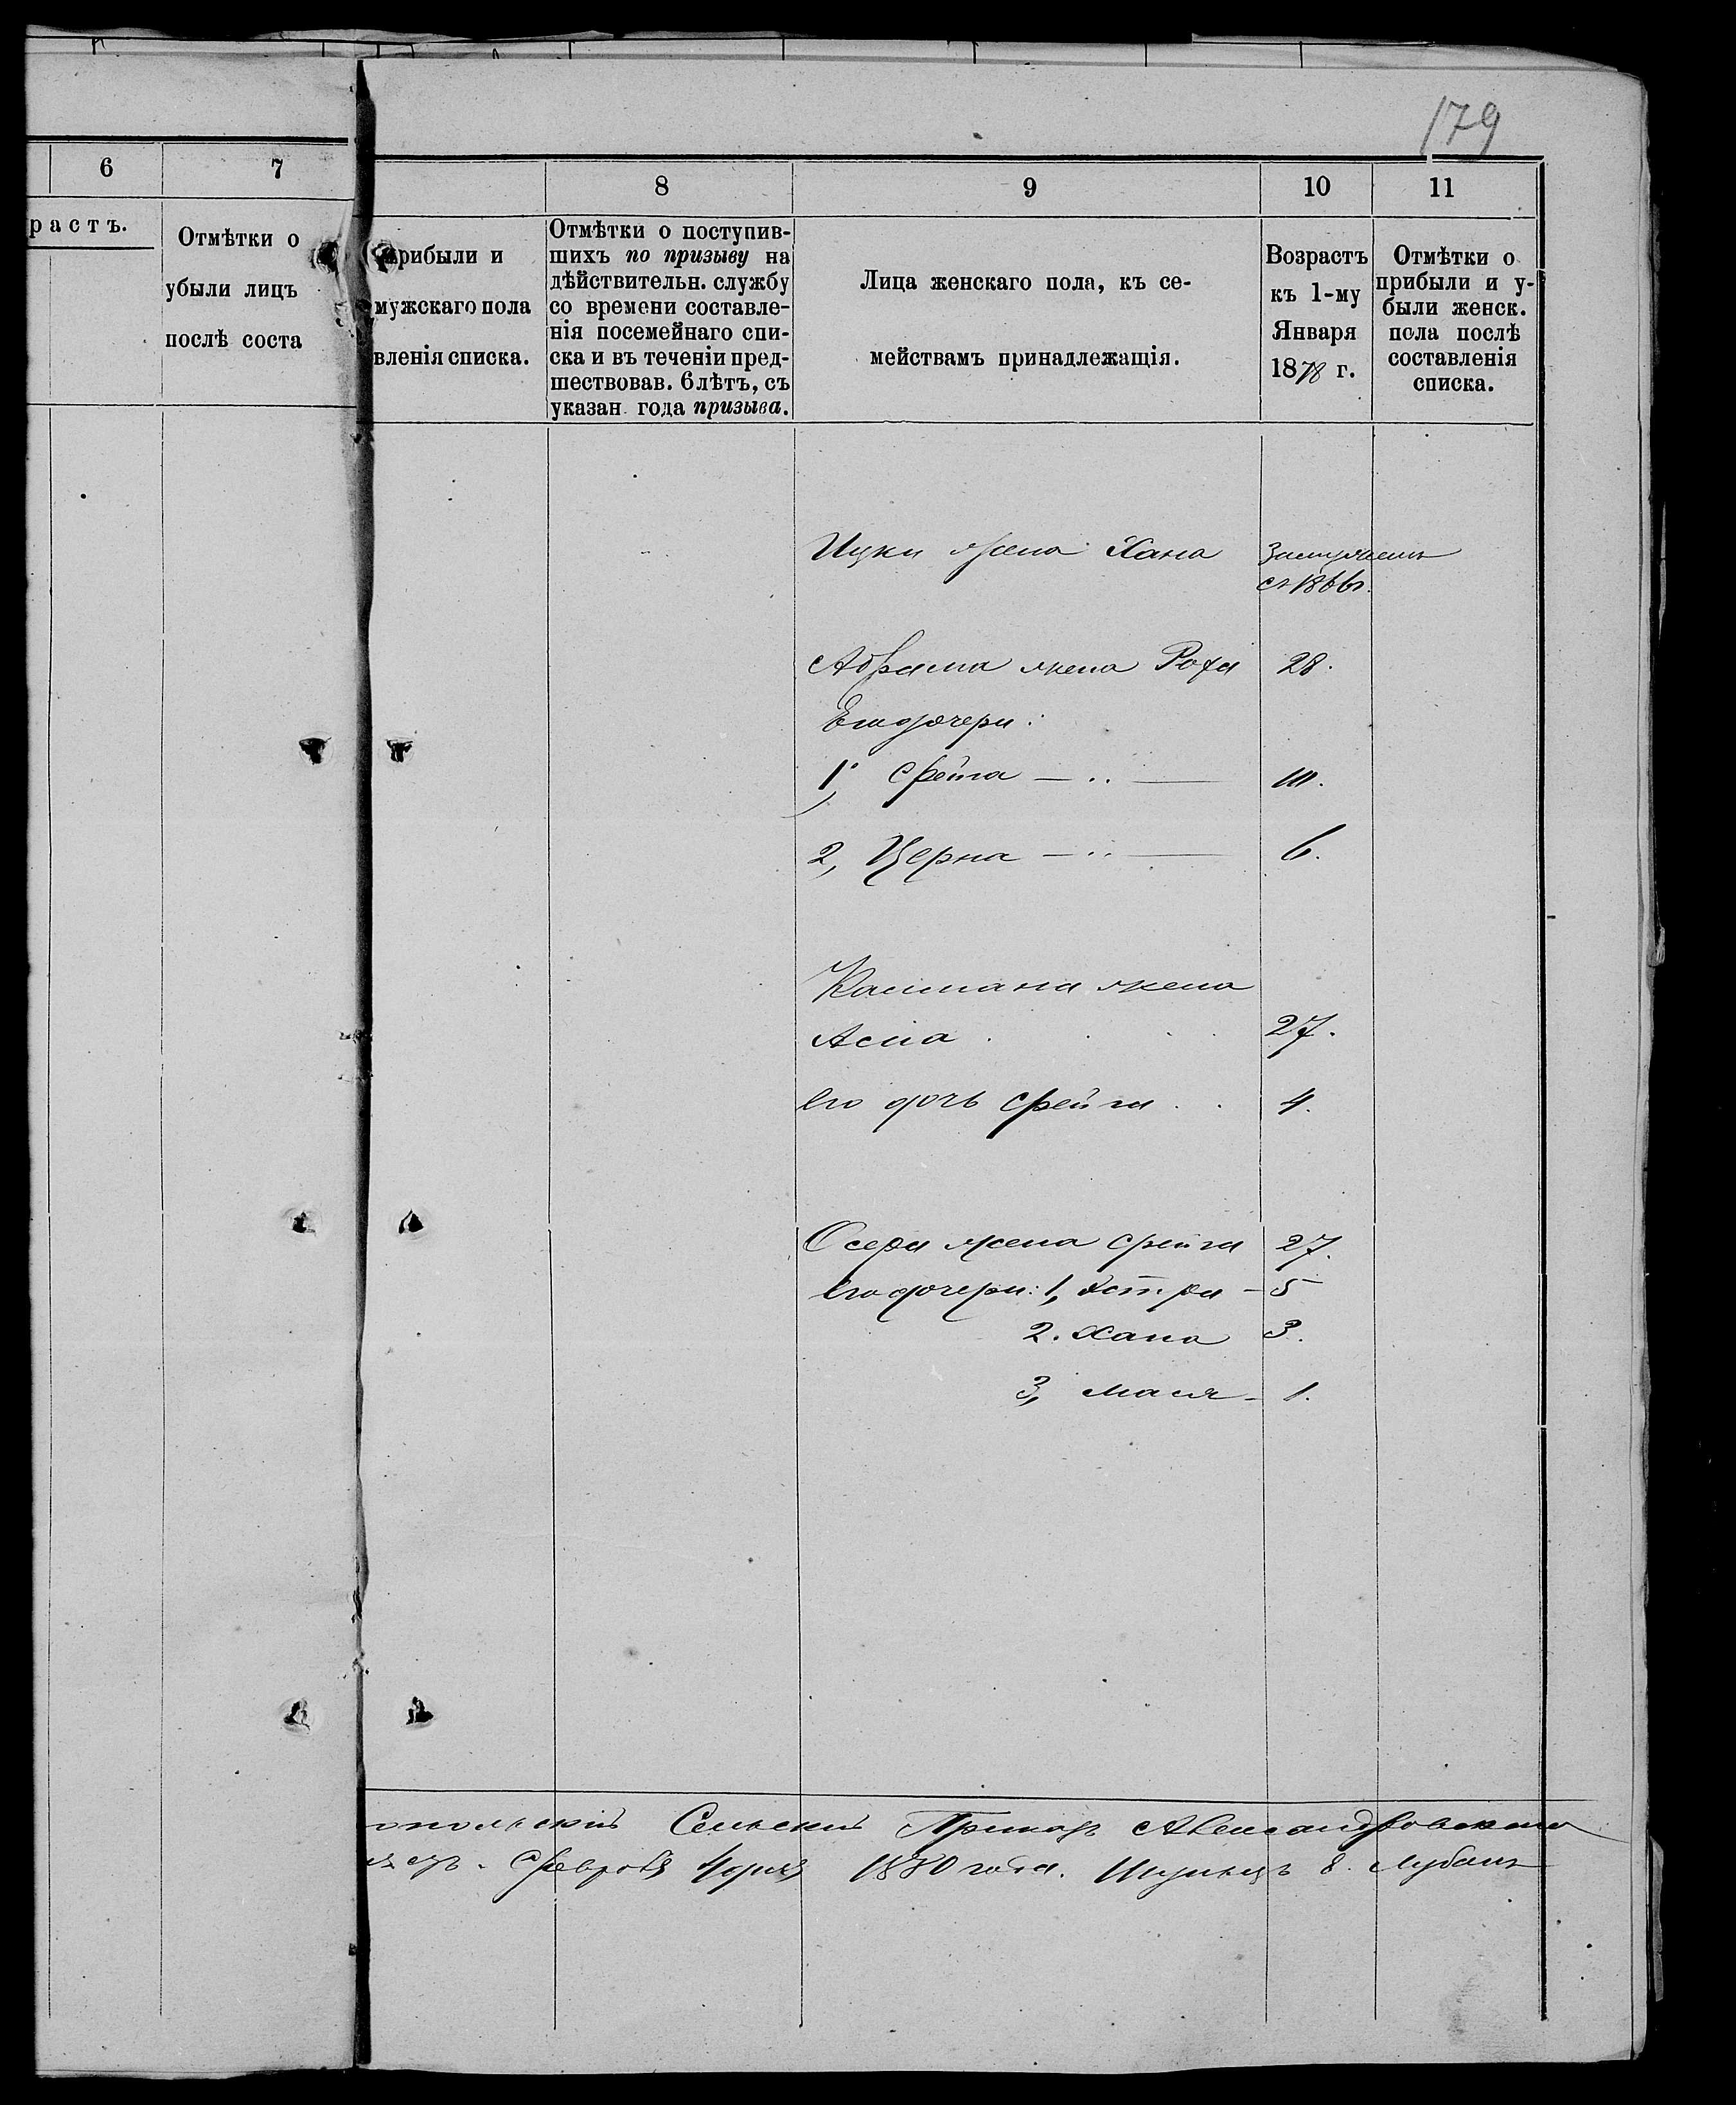 179
6 7
растъ.
Отмѣтки о
убыли лицъ
послѣ соста
8 9 10 11
прибыли и
мужскаго пола
вленія списка.
Отмѣтки о поступив-
шихъ по призыву на
дѣйствительн. службу
со времени составле-
нія посемейнаго спи-
ска и въ теченіи пред-
шествовав. 6 лѣтъ, съ
указан. года призыва.
Лица женскаго пола, къ се-
мействамъ принадлежащія.
Возрастъ
къ 1-му
Января
1878 г.
Отмѣтки о
прибыли и у-
были женск.
пола послѣ
составленія
списка.
Ицки жена Хана
съ 1866г.
Абрама жена Роха 28.
Его дочери:
1, Фейга — „ —
2, Церна — „ — 6.
жена
Асна 27.
Его дочь Фейга 4.
жена Фейга 27.
Его дочери: 1, Эстра - 5
2. Хана 3.
3, - 1.
опольскій Сельскій Приказъ Александровскаго
Февраля 4 дня 1880 года.